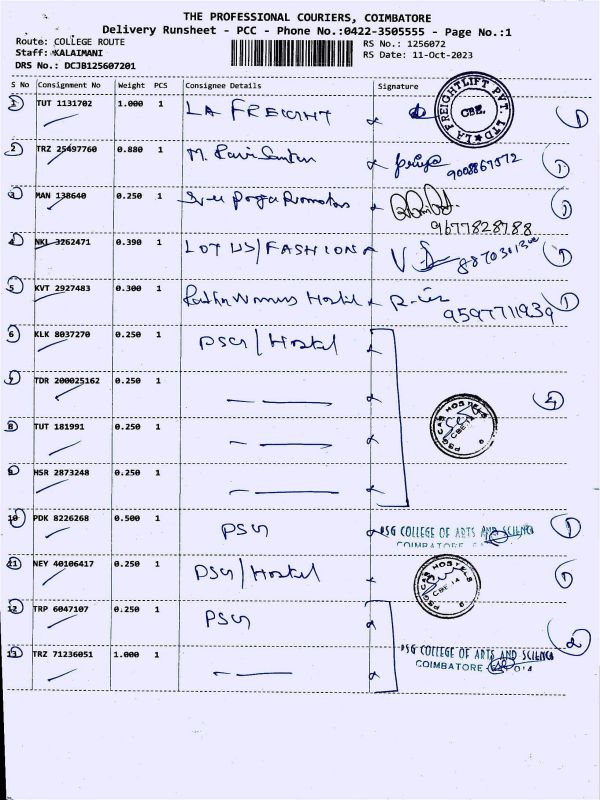 THE PROFESSIONAL COURIERS, COIMBATORE
Delivery Runsheet - PCC - Phone No.:0422-3505555 - Page No.:1
Route: COLLEGE ROUTE RS No.: 1256072
Staff: KALAIMANI RS Date: 11-Oct-2023
DRS No.: DCJB125607201
S No Consignment No Weight PCS Consignee Details Signature
1 TUT 1131702 1.000 1 LA FREIGHT LA FREIGHTLIFT PVT. LTD CBE. 1
2 TRZ 25497760 0.880 1 M. Priya 1
3 MAN 138640 0.250 1 9677828788 1
4 NKL 3262471 0.390 1 LOTUS/FASHION 1
5 KVT 2927483 0.300 1 Womens Hostel 9597711939 1
6 KLK 8037270 0.250 1 PSG/Hostel
7 TDR 200025162 0.250 1 — —— PSG CAS HOSTELS CBE.14 4
8 TUT 181991 0.250 1 — ——
9 HSR 2873248 0.250 1 — ——
10 PDK 8226268 0.500 1 PSG PSG COLLEGE OF ARTS AND SCIENCE 1
COIMBATORE
11 NEY 40106417 0.250 1 PSG/Hostel PSG CAS HOSTELS CBE.14 1
12 TRP 6047107 0.250 1 PSG 2
13 TRZ 71236051 1.000 1 — —— PSG COLLEGE OF ARTS AND SCIENCE
COIMBATORE 014